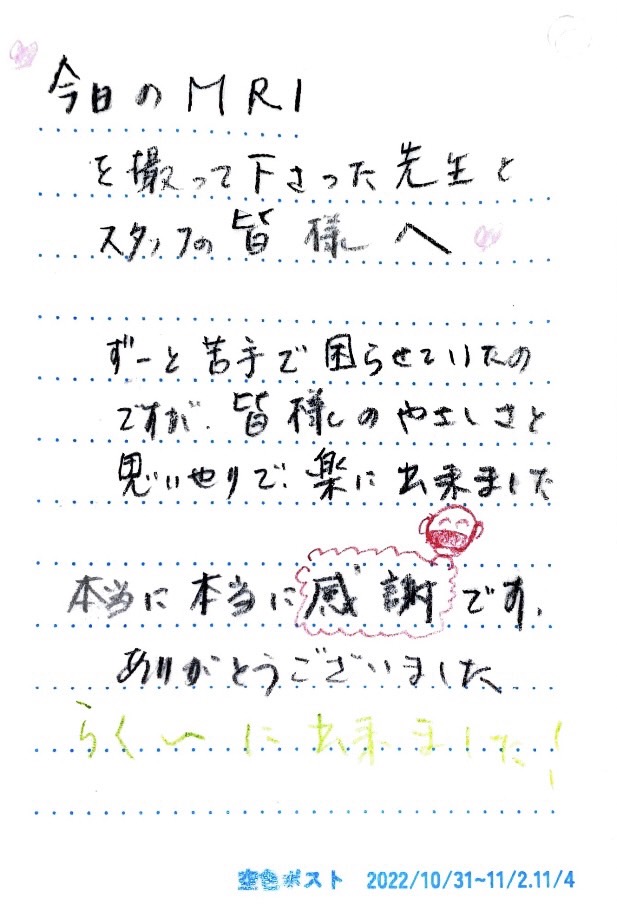 今日のMRI
を撮って下さった先生と
スタッフの皆様へ
ずーと苦手で困らせていたの
ですが、皆様のやさしさと
思いやりで、楽に出来ました
本当に本当に感謝です、
ありがとうございました
らく〜に出来ました!
空色ポスト 2022/10/31~11/2.11/4